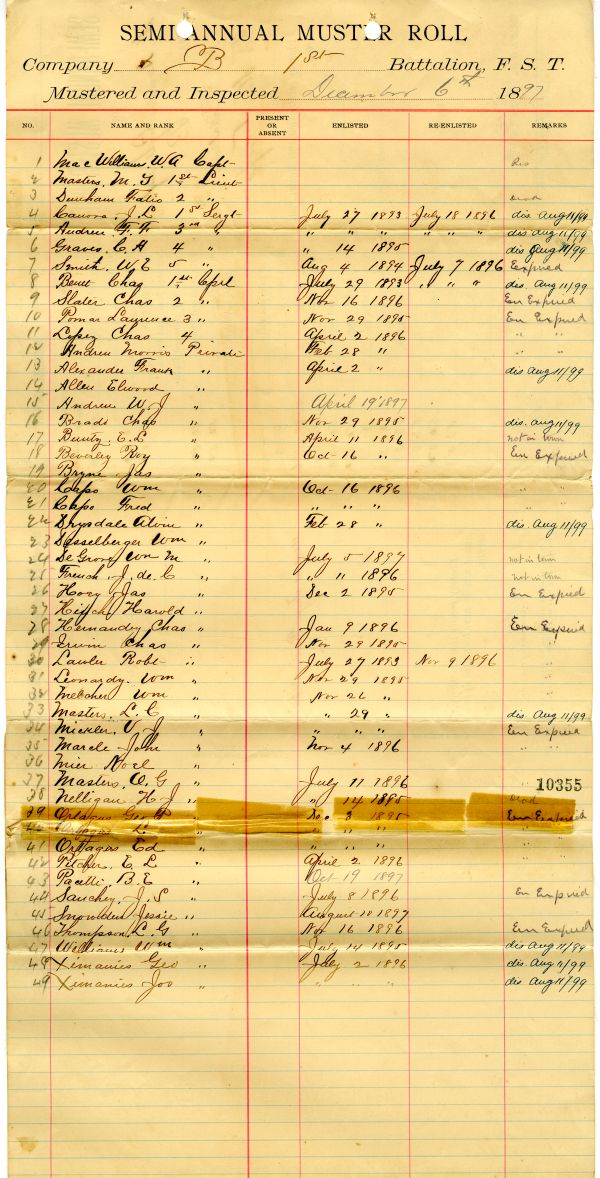 SEMI-ANNUAL MUSTER ROLL
Company B 1st Battalion, F. S. T.
Mustered and Inspected December 6th 1897
NO. NAME AND RANK PRESENT OR ABSENT ENLISTED RE-ENLISTED REMARKS
1 MacWilliams, W. A Capt Dis
2 Masters, M. J 1st Lieut
3 Dunham Fatio 2 " Dead
4 Canova, J. L 1st Sergt July 27 1893 July 18 1896 dis Aug 11/99
5 Andreu, F. F. 3rd " " " " " " " dis Aug 11/99
6 Graves, C. H 4 " " 14 1895 dis Aug 11/99
7 Smith, W. E 5 " Aug 4 1894 July 7 1896 Expired
8 Benet Chas 1st Corpl July 29 1893 " " " dis. Aug 11/99
9 Slater Chas 2 " Nov 16 1896 Em Expired
10 Pomar Laurence 3 " Nov 29 1895 Em Expired
11 Lopez Chas 4 April 2 1896 " "
12 Andreu Morris Private Feb 28 "
13 Alexander Frank " April 2 " dis Aug 11/99
14 Allen Elwood "
15 Andreu W. J " April 19 1897
16 Bradt Chas " Nov 29 1895 dis. Aug 11/99
17 E. L " April 11 1896 not in town
18 Beverley Roy " Oct 16 " Em Expired
19 Bryne Jas "
20 Capo Wm " Oct 16 1896 " "
21 Capo Fred " " " " " "
22 Drysdale Alvin " Feb 28 " dis. Aug 11/99
23 Desselberger Wm "
24 DeGrove Wm M " July 5 1897 not in town
25 French, J. de C " " " 1896 not in town
26 Hoey Jas " Dec 2 1895 Em Expired
27 Harold "
28 Hernandez Chas " Jan 9 1896 Em Expired
29 Irwin Chas " Nov 29 1895 "
30 Lawler Robt " July 27 1893 Nov 9 1896
31 Leonardy, Wm " Nov 29 1895
32 Wm " Nov 26 "
33 Masters, L. C " " 29 " dis. Aug 11/99
34 Mickler, V. J " " " " Em Expired
35 John " Nov 4 1896 " "
36 Mier Noel "
37 Masters, O. G " July 11 1896 " 10355
38 Nelligan H. J " " 14 1895 Dead
39 Ortagus Geo " Dec. 3 1895 Em Expired
40 Ortagus L " " " " " "
41 Ortagus Ed " " " " "
42 Pitcher, E. L " April 2 1896 " "
43 Pacetti, B. E " Oct 19 1897
44 Sanchez, J. S " July 8 1896 Em Expired
45 Snowden Jessie " August 10 1897
46 Thompson, L. G " Nov 16 1896 Em Expired
47 Williams Wm " July 14 1895 dis Aug 11/99
48 Ximanies Geo " July 2 1896 dis. Aug 11/99
49 Ximanies Joo " " " " dis Aug 11/99